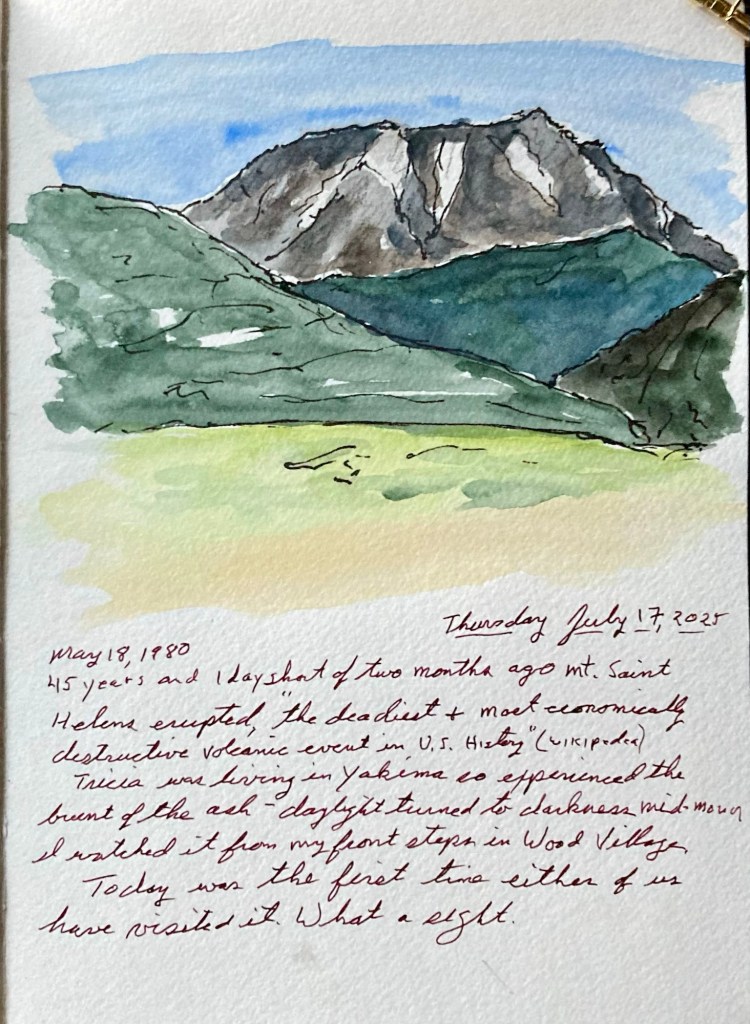 Thursday July 17, 2025
May 18, 1980
45 years and 1 day short of two months ago Mt. Saint
Helens erupted, "the deadliest + most economically
destructive volcanic event in U.S. History" (wikipedea)
Tricia was living in Yakima so experienced the
brunt of the ash - daylight turned to darkness mid-morn
I watched it from my front steps in Wood Village,
Today was the first time either of us
have visited it. What a sight.